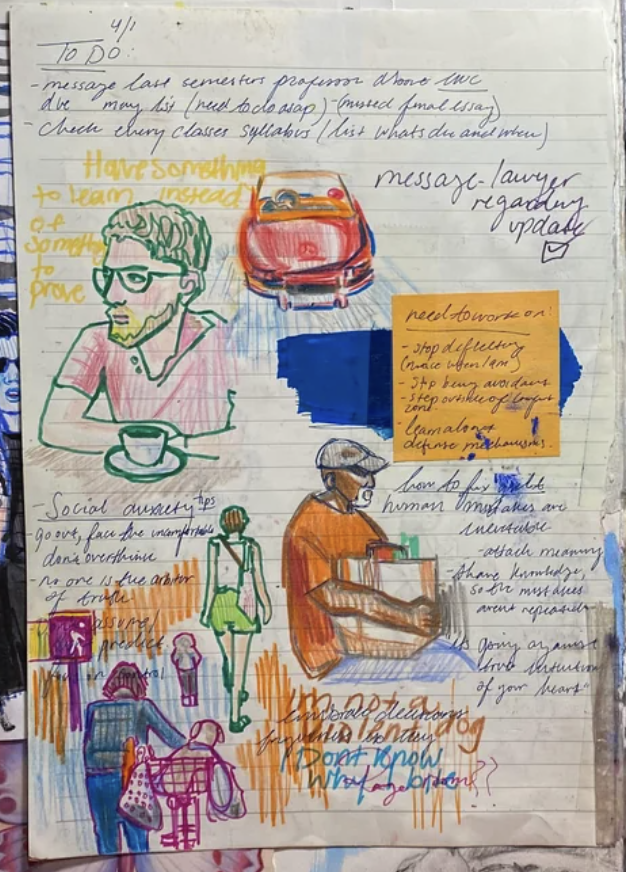 4/1
TO DO:
- message last semesters professor
due may 1st (need to do asap) - (missed final essay)
- check every classes syllabus (list whats due and when)
Have something
to learn instead
of
something
to
prove
message - lawyer
regarding
update
need to work on:
- stop deflecting
(notice when I am)
- stop being avoidant
- step outside of comfort
zone.
- learn about
defense mechanisms.
- Social anxiety tips
go out, face the uncomfortable
don't overthink
- no one is the arbiter
of truth
assume/
predict
control
how to fix
human mistakes are
inevitable
- attach meaning
- share knowledge,
so the mistakes
arent repeated
"its going against
of your heart"
I'm not a dog
I Don't know
what